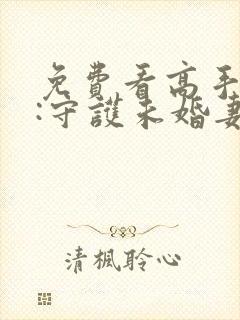 免費看高手
:守護未婚妻
清楓聆心